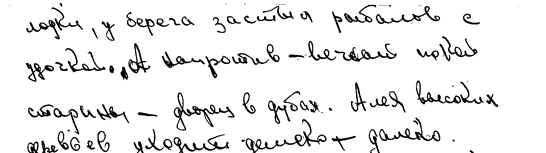 лодки, у берега застыл рыболов с
удочкой... А напротив – вечный покой
старины – дворец в дубах. Алея высоких
деревьев уходит далеко – далеко.